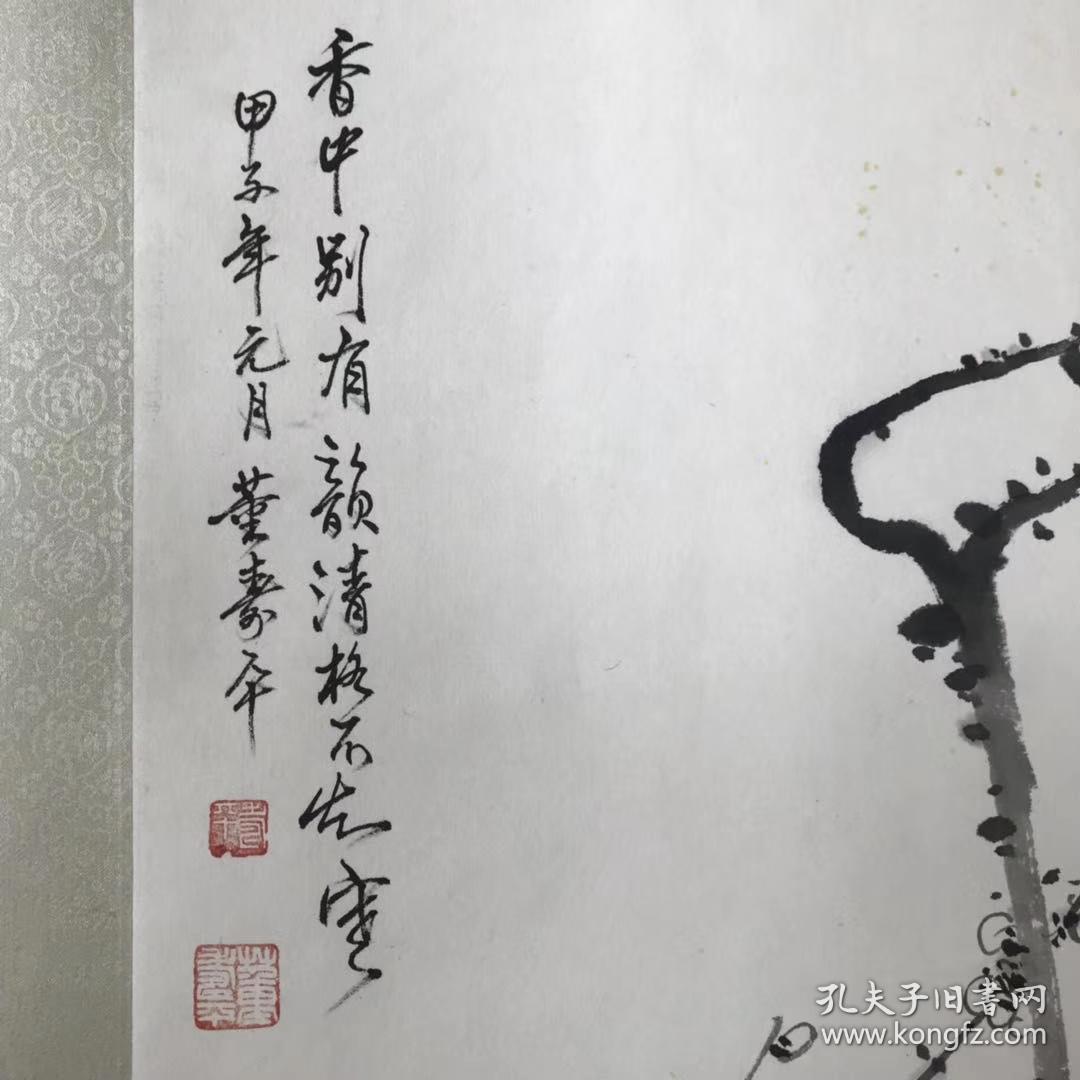 香中别有韻清格不知寒
甲子年元月董壽平
壽平
董壽平
孔夫子旧書网
www.kongfz.com